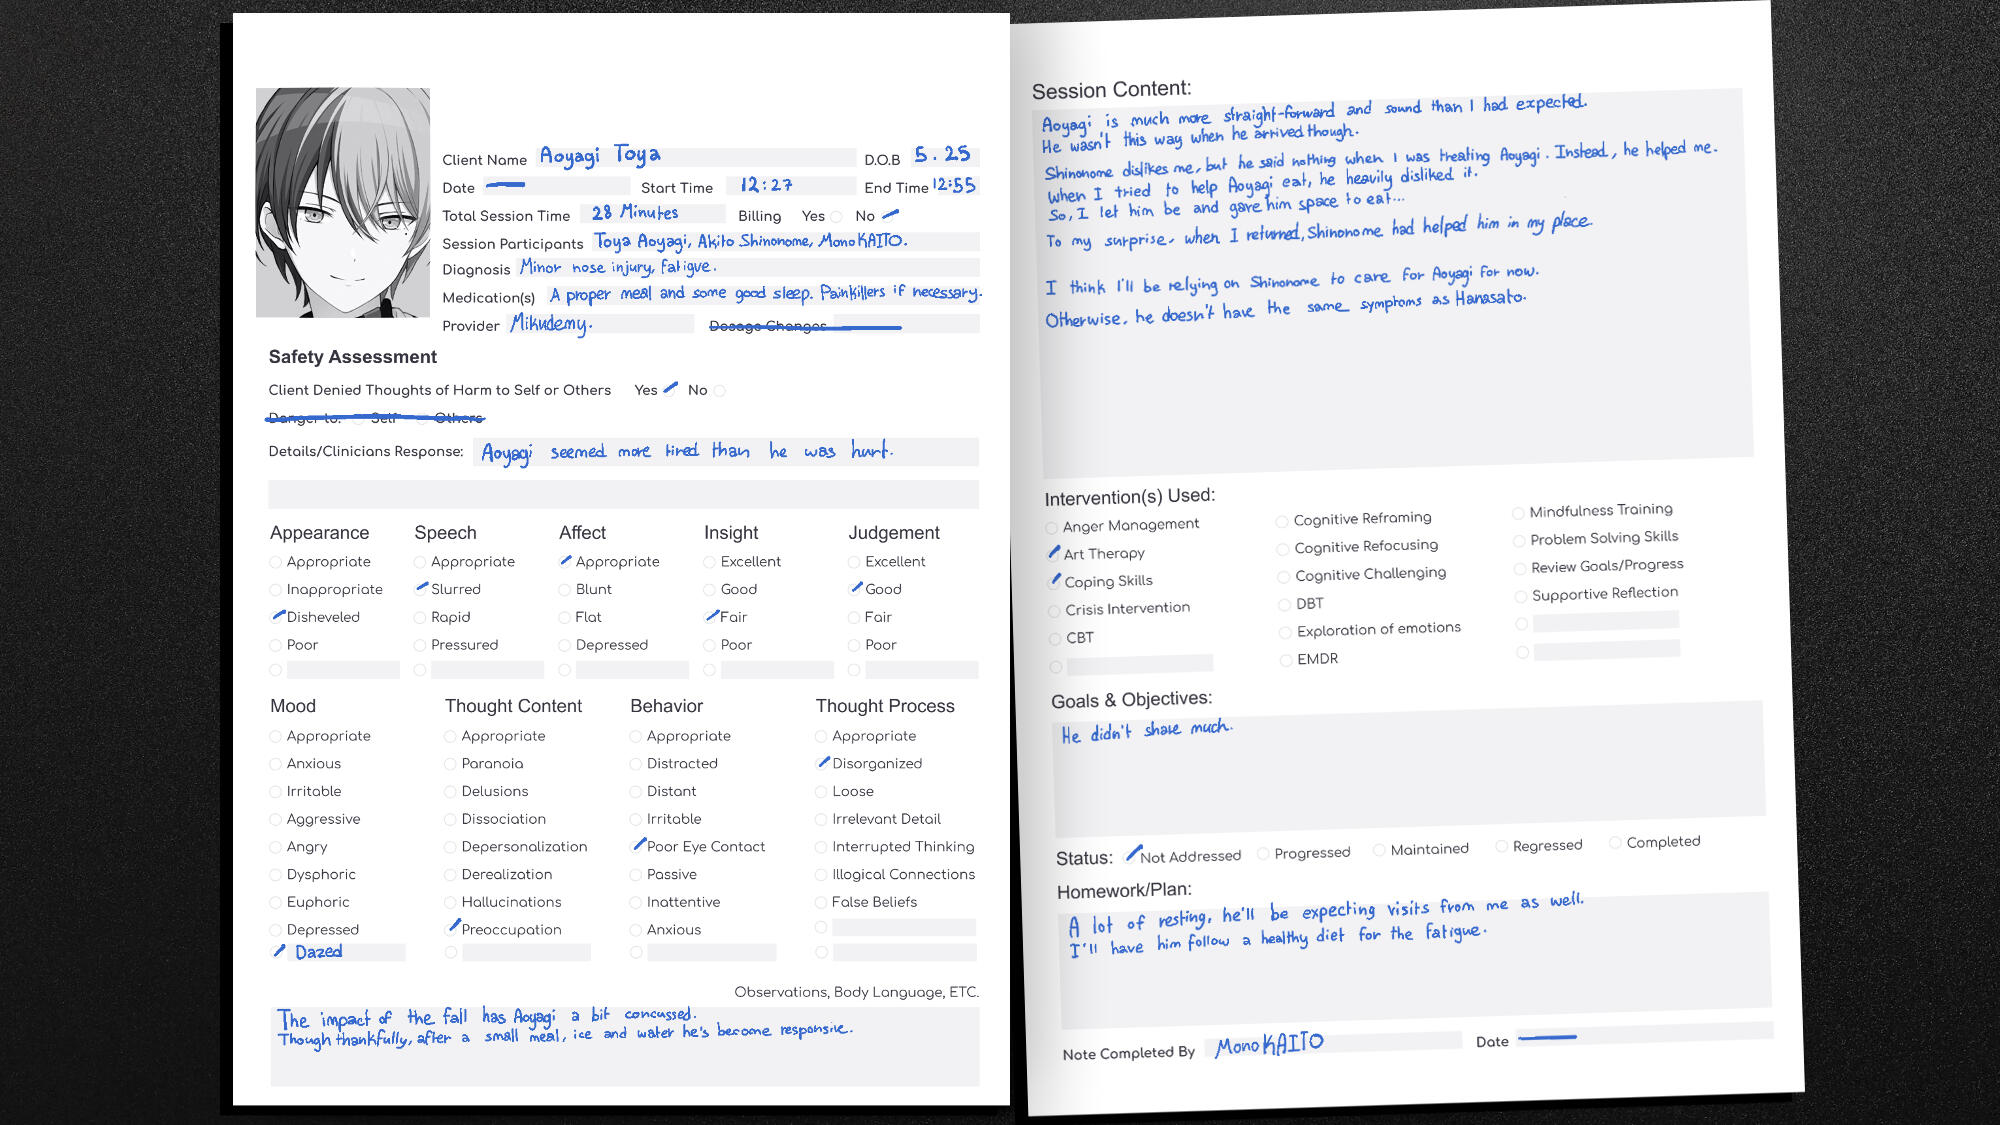 Client Name Aoyagi Toya D.O.B 5.25
Date Start Time 12:27 End Time 12:55
Total Session Time 28 Minutes Billing Yes No
Session Participants Toya Aoyagi, Akito Shinonome, MonoKAITO.
Diagnosis Minor nose injury, fatigue.
Medication(s) A proper meal and some good sleep. Painkillers if necessary.
Provider Mikudemy. Dosage Changes
Safety Assessment
Client Denied Thoughts of Harm to Self or Others Yes No
Danger to: Self Others
Details/Clinicians Response: Aoyagi seemed more tired than he was hurt.
Appearance Speech Affect Insight Judgement
Appropriate Appropriate Appropriate Excellent Excellent
Inappropriate Slurred Blunt Good Good
Disheveled Rapid Flat Fair Fair
Poor Pressured Depressed Poor Poor
Mood Thought Content Behavior Thought Process
Appropriate Appropriate Appropriate Appropriate
Anxious Paranoia Distracted Disorganized
Irritable Delusions Distant Loose
Aggressive Dissociation Irritable Irrelevant Detail
Angry Depersonalization Poor Eye Contact Interrupted Thinking
Dysphoric Derealization Passive Illogical Connections
Euphoric Hallucinations Inattentive False Beliefs
Depressed Preoccupation Anxious
Dazed
Observations, Body Language, ETC.
The impact of the fall has Aoyagi a bit concussed.
Though thankfully, after a small meal, ice and water he's become responsive.
Session Content:
Aoyagi is much more straight-forward and sound than I had expected.
He wasn't this way when he arrived though.
Shinonome dislikes me, but he said nothing when I was treating Aoyagi. Instead, he helped me.
When I tried to help Aoyagi eat, he heavily disliked it.
So, I let him be and gave him space to eat...
To my surprise, when I returned, Shinonome had helped him in my place.
I think I'll be relying on Shinonome to care for Aoyagi for now.
Otherwise, he doesn't have the same symptoms as Hanasato.
Intervention(s) Used:
Anger Management Cognitive Reframing Mindfulness Training
Art Therapy Cognitive Refocusing Problem Solving Skills
Coping Skills Cognitive Challenging Review Goals/Progress
Crisis Intervention DBT Supportive Reflection
CBT Exploration of emotions
EMDR
Goals & Objectives:
He didn't share much.
Status: Not Addressed Progressed Maintained Regressed Completed
Homework/Plan:
A lot of resting, he'll be expecting visits from me as well.
I'll have him follow a healthy diet for the fatigue.
Note Completed By MonoKAITO Date